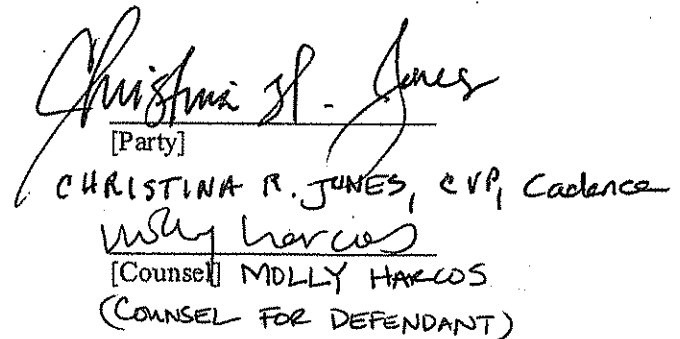 Christina R. Jones
[Party]
CHRISTINA R. JONES, CVP, Cadence
Molly Harcos
[Counsel] MOLLY HARCOS
(COUNSEL FOR DEFENDANT)